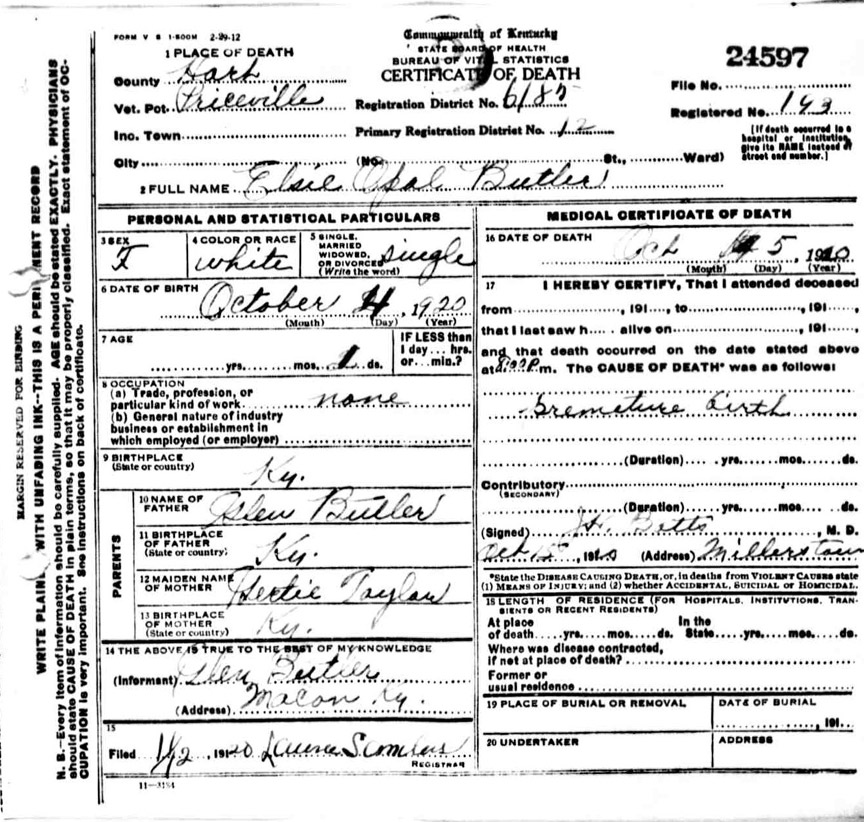 FORM V S 1-500M 2-29-12
Commonwealth of Kentucky
STATE BOARD OF HEALTH
BUREAU OF VITAL STATISTICS
CERTIFICATE OF DEATH
24597
File No.
Registered No. 193
[If death occurred in a
hospital or institution,
give its NAME instead of
street and number.]
1 PLACE OF DEATH
County Hart
Vot. Pct. Priceville
Registration District No. 6185
Inc. Town
Primary Registration District No. 12
City (No. St., Ward)
2 FULL NAME Elsie Opal Butler
PERSONAL AND STATISTICAL PARTICULARS
3 SEX F
4 COLOR OR RACE white
5 SINGLE, MARRIED WIDOWED, OR DIVORCED (Write the word) single
6 DATE OF BIRTH October 4, 1920
(Month) (Day) (Year)
7 AGE
yrs. mos. 1 ds.
IF LESS than
1 day... hrs.
or... min.?
8 OCCUPATION
(a) Trade, profession, or
particular kind of work none
(b) General nature of industry
business or establishment in
which employed (or employer)
9 BIRTHPLACE
(State or country) Ky.
PARENTS
10 NAME OF
FATHER Glen Butler
11 BIRTHPLACE
OF FATHER
(State or country) Ky.
12 MAIDEN NAME
OF MOTHER Taylor
13 BIRTHPLACE
OF MOTHER
(State or country) Ky.
14 THE ABOVE IS TRUE TO THE BEST OF MY KNOWLEDGE
(Informant) Glen Butler
(Address) Macon Ky.
15
Filed 11/2, 1920
REGISTRAR
11-3184
MEDICAL CERTIFICATE OF DEATH
16 DATE OF DEATH Oct 5, 1920
(Month) (Day) (Year)
17 I HEREBY CERTIFY, That I attended deceased
from, 191, to, 191,
that I last saw h alive on, 191,
and that death occurred on the date stated above
at m. The CAUSE OF DEATH* was as follows:
Premature birth
(Duration) yrs. mos. ds.
Contributory
(SECONDARY)
(Duration) yrs. mos. ds.
(Signed) J.H. Betts, M. D.
(Address) Millerstown
*State the DISEASE CAUSING DEATH, or, in deaths from VIOLENT CAUSES state
(1) MEANS OF INJURY; and (2) whether ACCIDENTAL, SUICIDAL OR HOMICIDAL.
18 LENGTH OF RESIDENCE (FOR HOSPITALS, INSTITUTIONS, TRAN-
SIENTS OR RECENT RESIDENTS)
At place In the
of death yrs. mos. ds. State yrs. mos. ds.
Where was disease contracted,
if not at place of death?
Former or
usual residence
19 PLACE OF BURIAL OR REMOVAL
DATE OF BURIAL
, 191
20 UNDERTAKER
ADDRESS
MARGIN RESERVED FOR BINDING
WRITE PLAINLY WITH UNFADING INK--THIS IS A PERMANENT RECORD
N. B.--Every item of information should be carefully supplied. AGE should be stated EXACTLY. PHYSICIANS
should state CAUSE OF DEATH in plain terms, so that it may be properly classified. Exact statement of OC-
CUPATION is very important. See instructions on back of certificate.